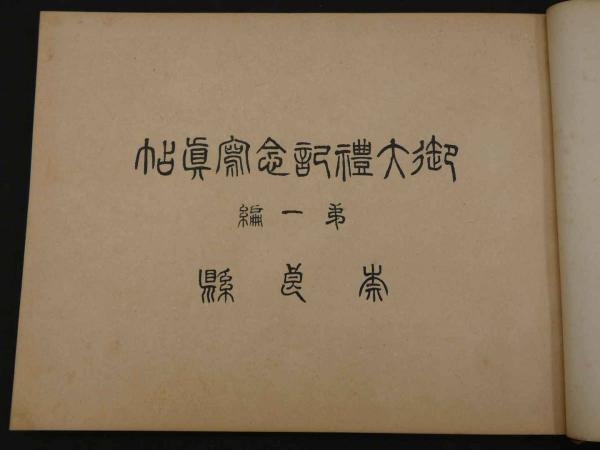 御大禮記念寫眞帖
第一編
奈良縣